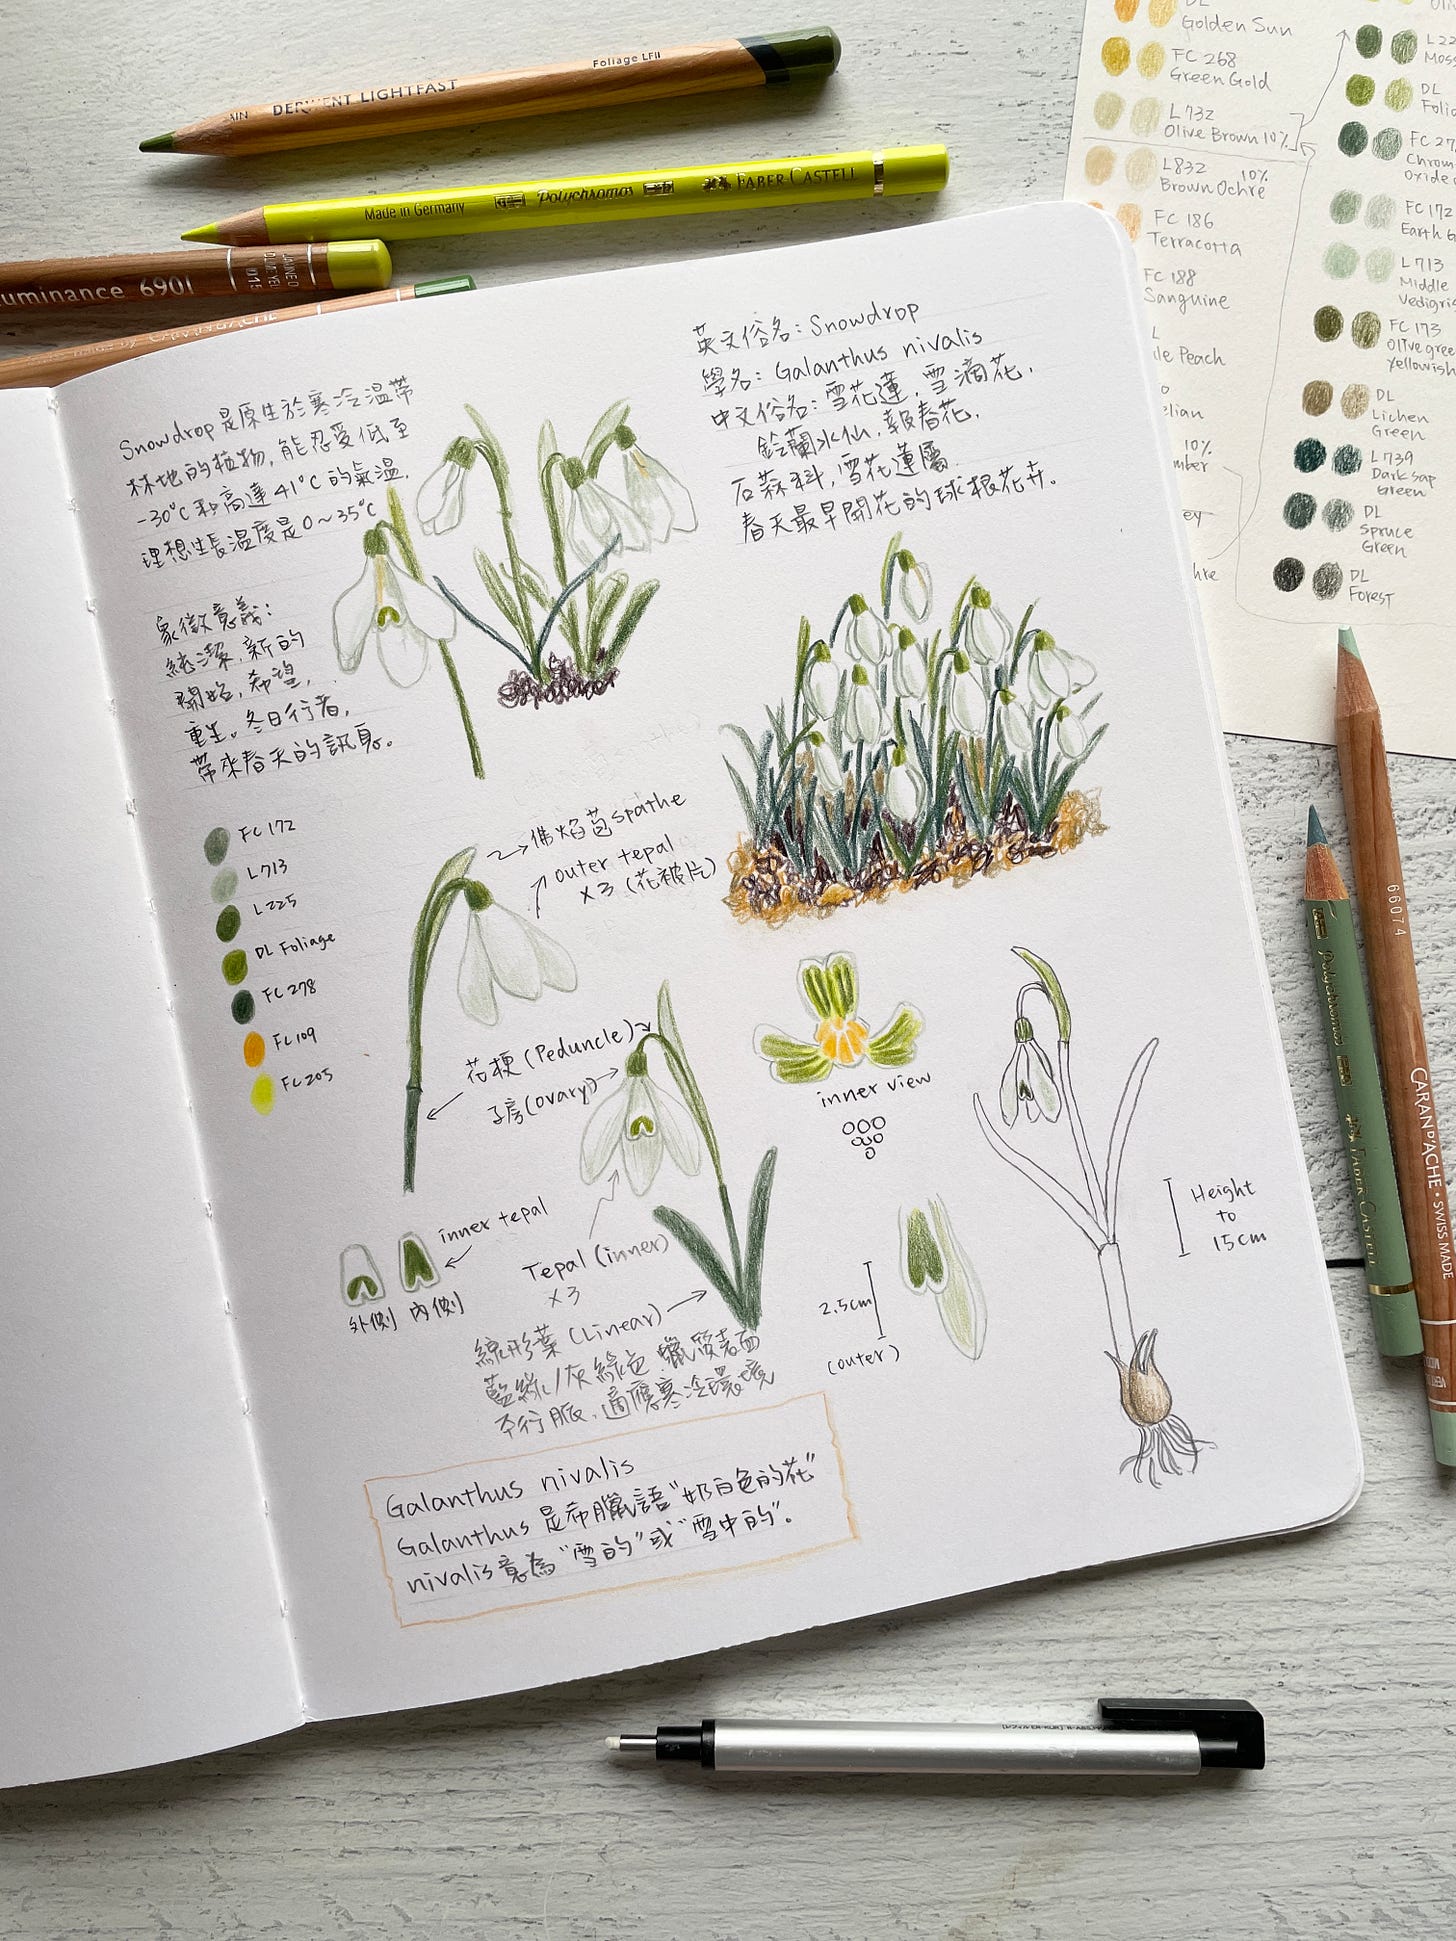 DERWENT LIGHTFAST
Foliage LFII
Made in Germany
Polychromos
FABER-CASTELL
uminance 6901
Golden Sun
FC 268
Green Gold
L732
Olive Brown 10%
L832 10%
Brown Ochre
FC 186
Terracotta
FC 188
Sanguine
Peach
10%
DL
FC 172
L713
Middle
FC 173
Olive green
yellowish
DL
Lichen
Green
L739
Dark Sap
Green
DL
Spruce
Green
DL
Forest
英文俗名: Snowdrop
學名: Galanthus nivalis
中文俗名: 雪花蓮, 雪滴花,
鈴蘭水仙, 報春花,
石蒜科, 雪花蓮屬
春天最早開花的球根花卉.
Snowdrop是原生於寒冷溫帶
林地的植物, 能忍受低至
-30°C 和高達 41°C 的氣溫.
理想生長溫度是0~35°C
象徵意義:
純潔, 新的
開始, 希望,
重生。冬日行者,
帶來春天的訊息。
FC 172
L713
L225
DL Foliage
FC 278
FC 109
FC 205
佛焰苞 spathe
outer tepal
x3 (花被片)
花梗 (Peduncle)
子房 (ovary)
inner view
inner tepal
外側 內側
Tepal (inner)
x3
線形葉 (Linear)
藍綠/灰綠色 蠟質表面
平行脈, 適應寒冷環境
2.5cm
(outer)
Height
to
15cm
Galanthus nivalis
Galanthus 是希臘語"奶白色的花"
nivalis意為"雪的"或"雪中的".
66074
CARAN D'ACHE • SWISS MADE
Polychromos
FABER-CASTELL